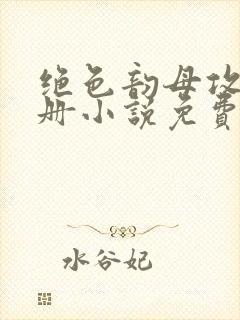 绝色韵母攻
册小说免费
水谷妃